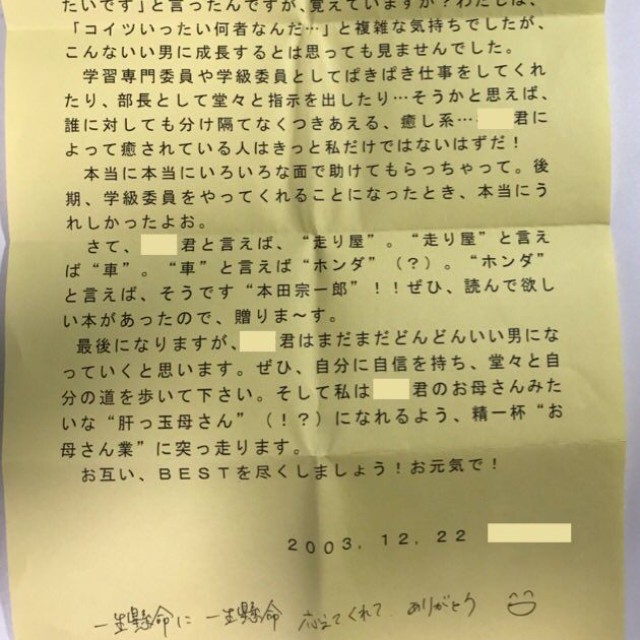 たいです」と言ったんですが、覚えていますか？わたしは、
「コイツいったい何者なんだ…」と複雑な気持ちでしたが、
こんないい男に成長するとは思っても見ませんでした。
学習専門委員や学級委員としてぱきぱき仕事をしてくれ
たり、部長として堂々と指示を出したり…そうかと思えば、
誰に対しても分け隔てなくつきあえる、癒し系…君に
よって癒されている人はきっと私だけではないはずだ！
本当に本当にいろいろな面で助けてもらっちゃって。後
期、学級委員をやってくれることになったとき、本当にう
れしかったよお。
さて、君と言えば、“走り屋”。“走り屋”と言え
ば“車”。“車”と言えば“ホンダ”（？）。“ホンダ”
と言えば、そうです“本田宗一郎”！！ぜひ、読んで欲し
い本があったので、贈りま～す。
最後になりますが、君はまだまだどんどんいい男にな
っていくと思います。ぜひ、自分に自信を持ち、堂々と自
分の道を歩いて下さい。そして私は君のお母さんみた
いな“肝っ玉母さん”（！？）になれるよう、精一杯“お
母さん業”に突っ走ります。
お互い、ＢＥＳＴを尽くしましょう！お元気で！
２００３．１２．２２
一生懸命に 一生懸命 応えてくれて ありがとう